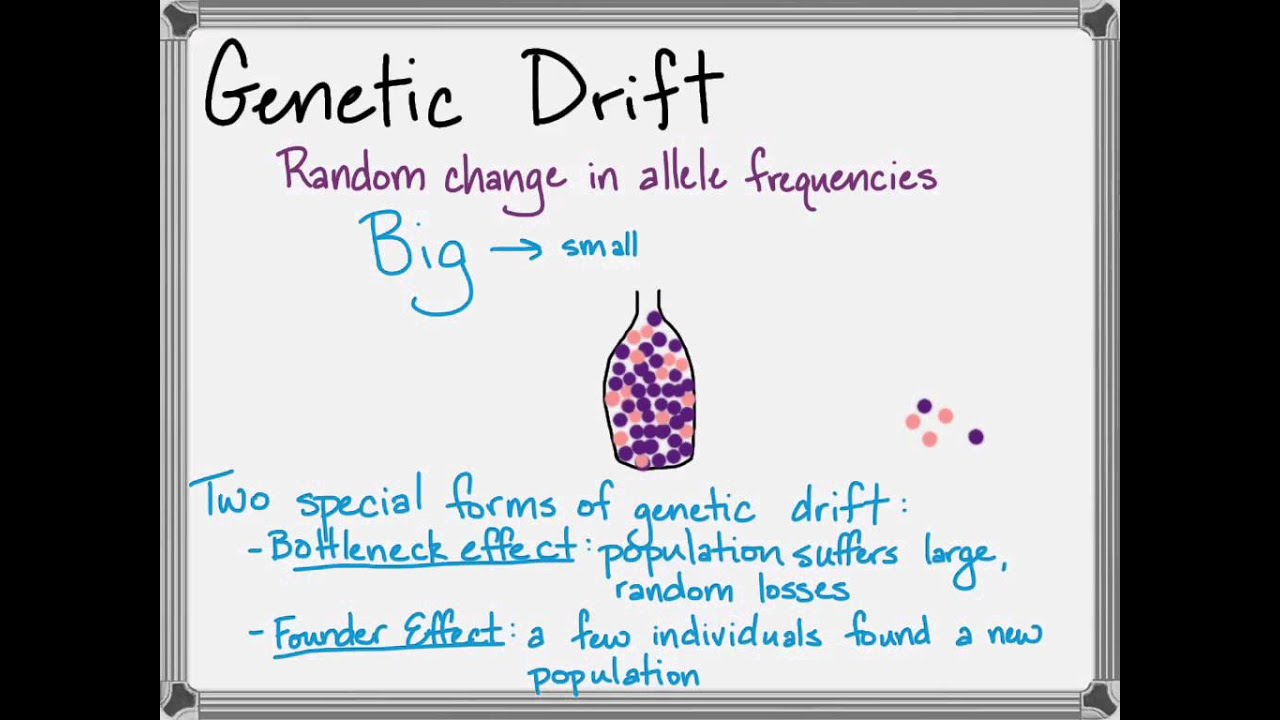 Genetic Drift
Random change in allele frequencies
Big → small
Two special forms of genetic drift:
- Bottleneck effect: population suffers large,
random losses
- Founder Effect: a few individuals found a new
population